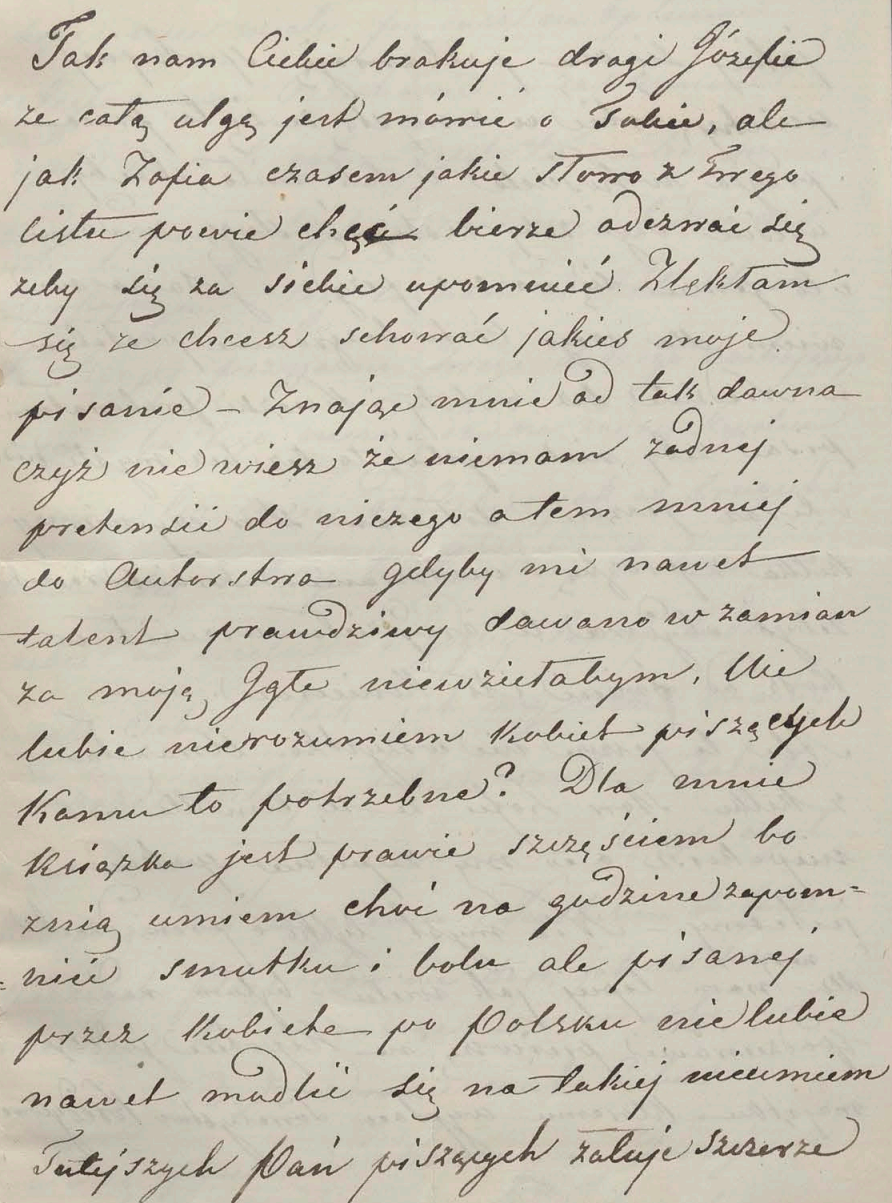 Tak nam Ciebie brakuje drogi Józefie
ze całą ulgą jest mówić o Tobie, ale
jak Zofia czasem jakie słowo z Twego
listu powie chęć bierze odezwać się
zeby się za siebie upomnieć. Zlękłam
się ze chcesz schować jakieś moje
pisanie – Znając mnie od tak dawna
czyż nie wiesz że niemam zadnej
pretensii do niczego a tem mniej
do Autorstwa gdyby mi nawet
talent prawdziwy dawano w zamian
za moją Igłe niewziełabym. Nie
lubie nierozumiem Kobiet piszących
Komu to potrzebne? Dla mnie
Książka jest prawie szczęściem bo
znią umiem choć na godzine zapom=
=nić smutku i bolu ale pisanej
przez Kobiete po Polsku nie lubie
nawet modlić się na takiej nieumiem
Tutejszych Pań piszących załuje szczerze